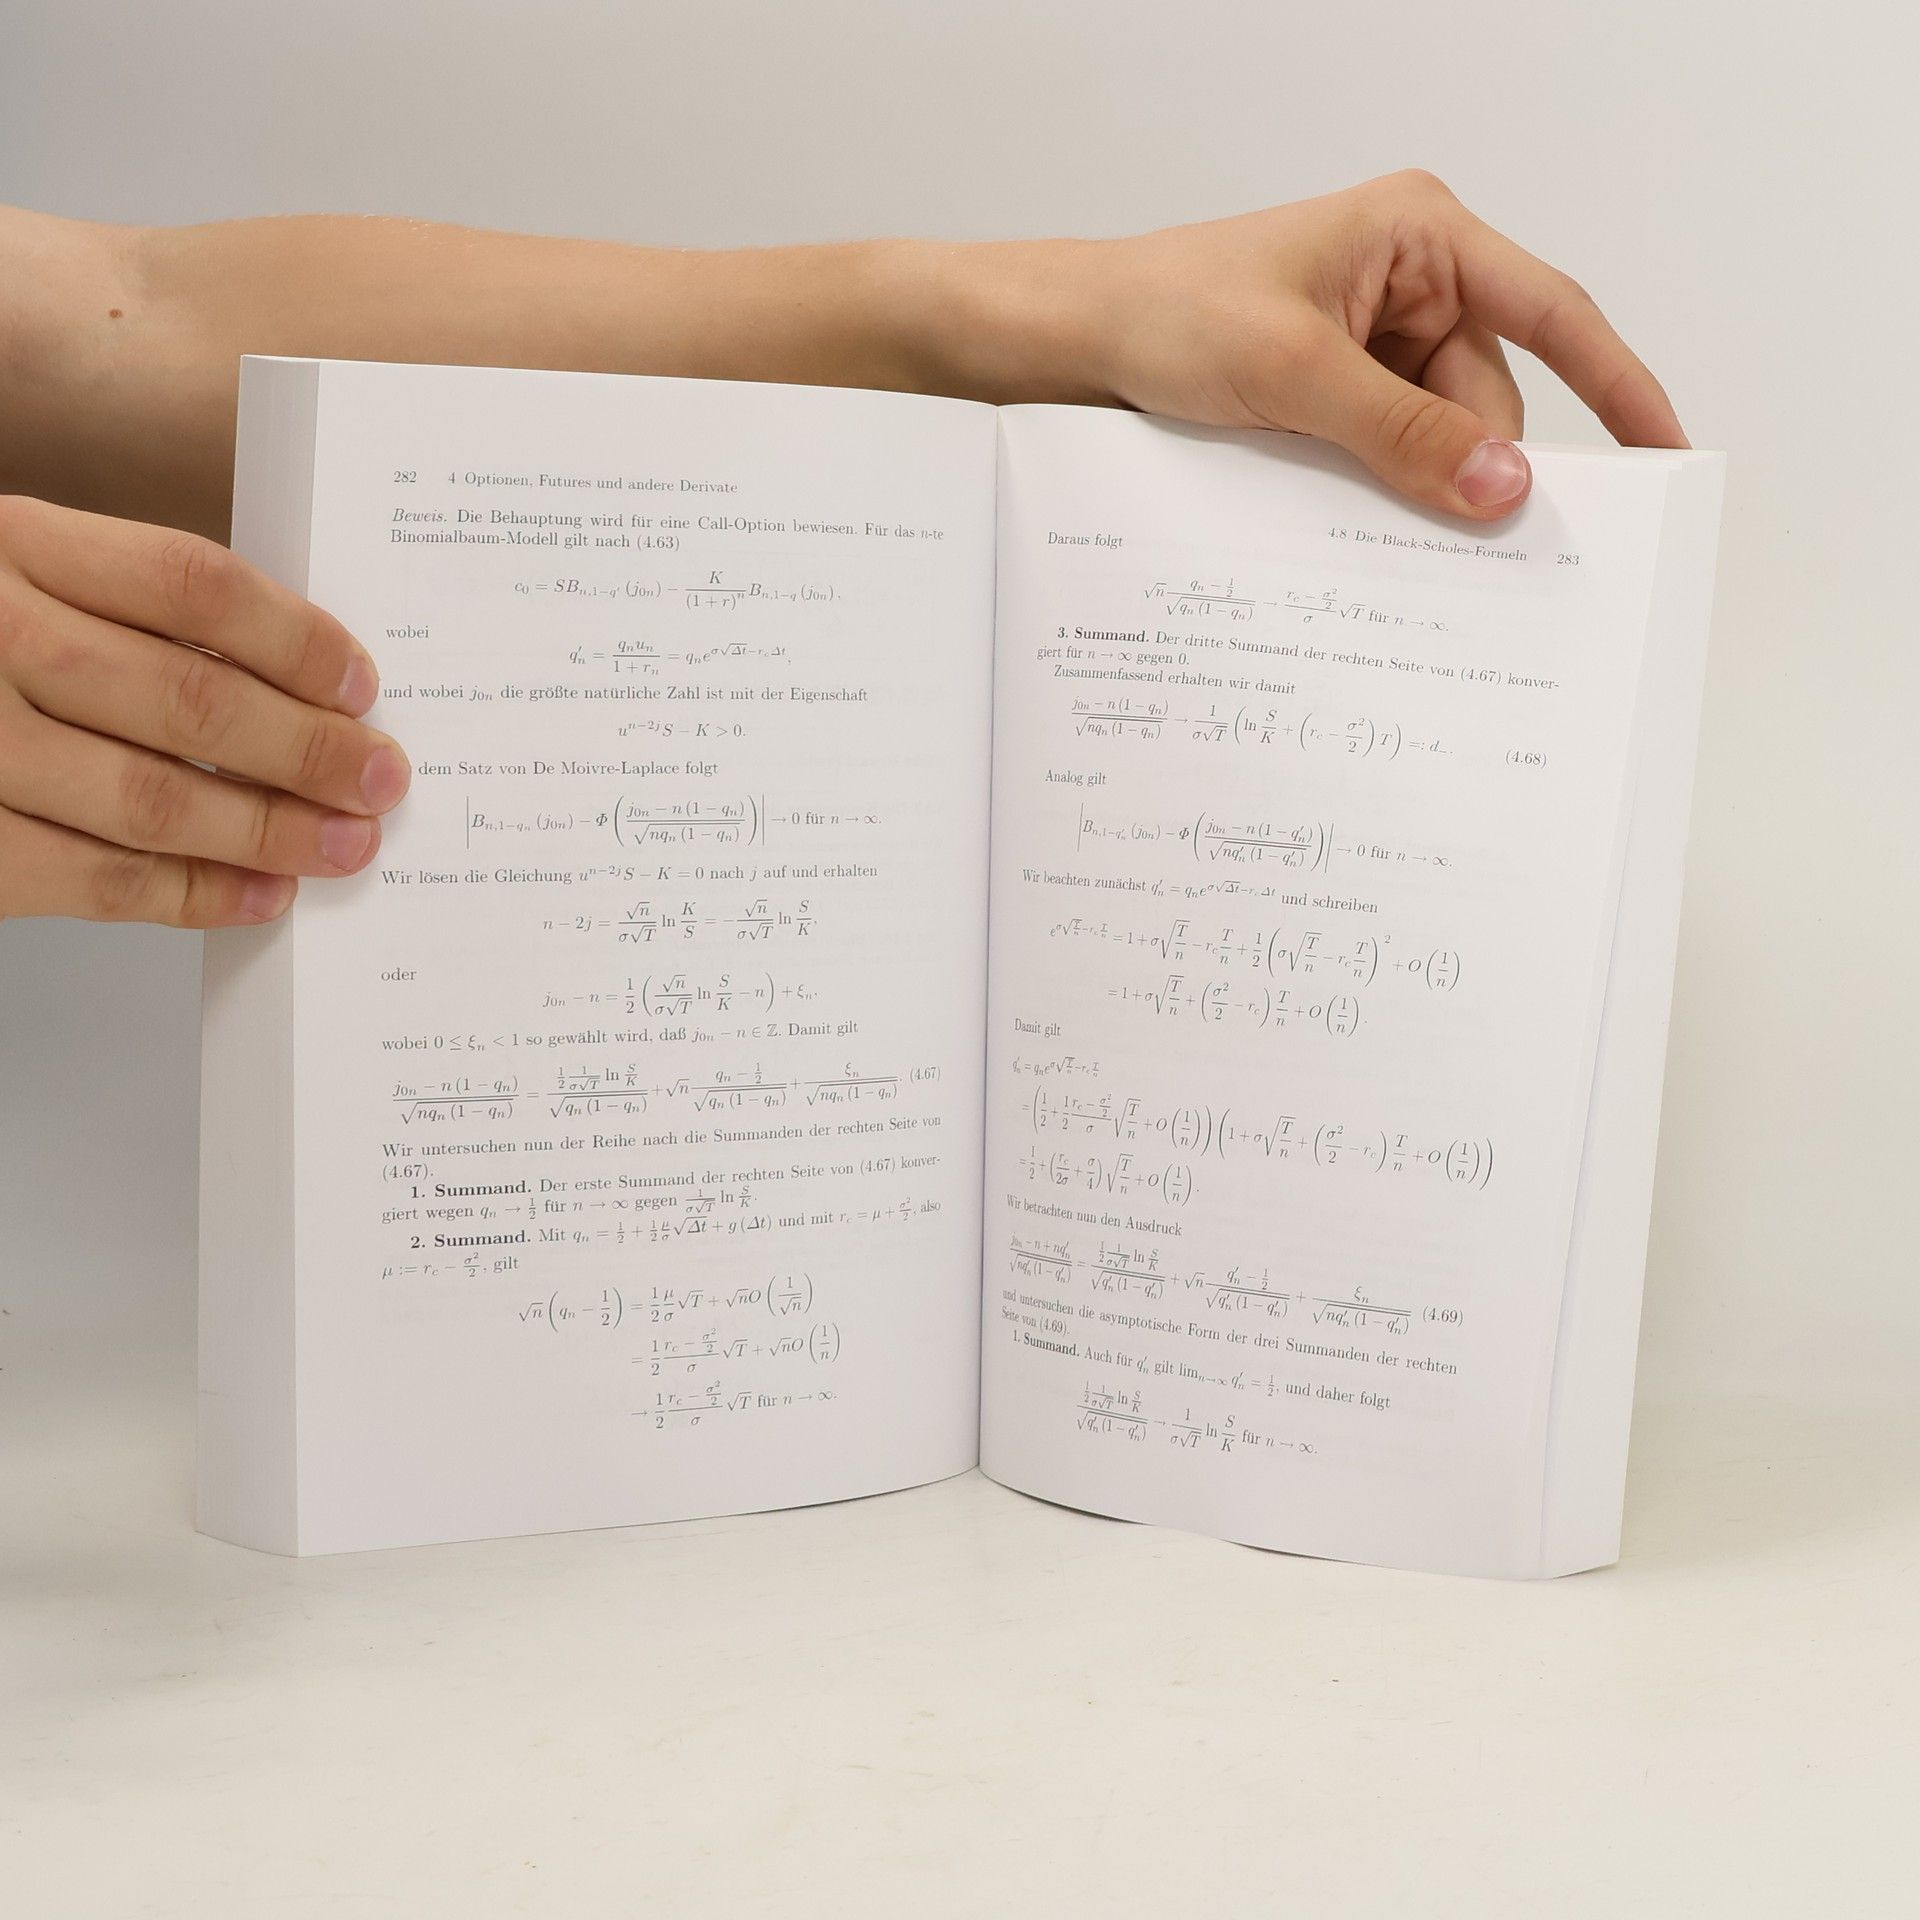 282 4 Optionen, Futures und andere Derivate
Beweis. Die Behauptung wird für eine Call-Option bewiesen. Für das n-te
Binomialbaum-Modell gilt nach (4.63)
c₀ = SB_{n,1−q′} (j₀ₙ) − K/(1 + r)ⁿ B_{n,1−q} (j₀ₙ) ,
wobei
q′ₙ = qₙuₙ/(1 + rₙ) = qₙe^{σ√Δt−r_cΔt},
und wobei j₀ₙ die größte natürliche Zahl ist mit der Eigenschaft
u^{n−2j}S − K > 0.
dem Satz von De Moivre-Laplace folgt
|B_{n,1−qₙ} (j₀ₙ) − Φ((j₀ₙ − n (1 − qₙ))/√(nqₙ (1 − qₙ)))| → 0 für n → ∞.
Wir lösen die Gleichung u^{n−2j}S − K = 0 nach j auf und erhalten
n − 2j = √n/(σ√T) ln K/S = −√n/(σ√T) ln S/K,
oder
j₀ₙ − n = 1/2 (√n/(σ√T) ln S/K − n) + ξₙ,
wobei 0 ≤ ξₙ < 1 so gewählt wird, daß j₀ₙ − n ∈ ℤ. Damit gilt
(j₀ₙ − n (1 − qₙ))/√(nqₙ (1 − qₙ)) = (1/2 1/(σ√T) ln S/K)/√(qₙ (1 − qₙ)) + √n (qₙ − 1/2)/√(qₙ (1 − qₙ)) + ξₙ/√(nqₙ (1 − qₙ)). (4.67)
Wir untersuchen nun der Reihe nach die Summanden der rechten Seite von
(4.67).
1. Summand. Der erste Summand der rechten Seite von (4.67) konver-
giert wegen qₙ → 1/2 für n → ∞ gegen 1/(σ√T) ln S/K.
2. Summand. Mit qₙ = 1/2 + 1/2 μ/σ √Δt + g (Δt) und mit r_c = μ + σ²/2, also
μ := r_c − σ²/2, gilt
√n (qₙ − 1/2) = 1/2 μ/σ √T + √nO (1/√n)
= 1/2 (r_c − σ²/2)/σ √T + √nO (1/n)
→ 1/2 (r_c − σ²/2)/σ √T für n → ∞.
4.8 Die Black-Scholes-Formeln 283
Daraus folgt
√n (qₙ − 1/2)/√(qₙ (1 − qₙ)) → (r_c − σ²/2)/σ √T für n → ∞.
3. Summand. Der dritte Summand der rechten Seite von (4.67) konver-
giert für n → ∞ gegen 0.
Zusammenfassend erhalten wir damit
(j₀ₙ − n (1 − qₙ))/√(nqₙ (1 − qₙ)) → 1/(σ√T) (ln S/K + (r_c − σ²/2) T) =: d₋. (4.68)
Analog gilt
|B_{n,1−q′ₙ} (j₀ₙ) − Φ((j₀ₙ − n (1 − q′ₙ))/√(nq′ₙ (1 − q′ₙ)))| → 0 für n → ∞.
Wir beachten zunächst q′ₙ = qₙe^{σ√Δt−r_cΔt} und schreiben
e^{σ√(T/n)−r_c T/n} = 1 + σ√(T/n) − r_c T/n + 1/2 (σ√(T/n) − r_c T/n)² + O (1/n)
= 1 + σ√(T/n) + (σ²/2 − r_c) T/n + O (1/n).
Damit gilt
q′ₙ = qₙe^{σ√(T/n)−r_c T/n}
= (1/2 + 1/2 (r_c − σ²/2)/σ √(T/n) + O (1/n)) (1 + σ√(T/n) + (σ²/2 − r_c) T/n + O (1/n))
= 1/2 + (r_c/2σ + σ/4) √(T/n) + O (1/n).
Wir betrachten nun den Ausdruck
(j₀ₙ − n + nq′ₙ)/√(nq′ₙ (1 − q′ₙ)) = (1/2 1/(σ√T) ln S/K)/√(q′ₙ (1 − q′ₙ)) + √n (q′ₙ − 1/2)/√(q′ₙ (1 − q′ₙ)) + ξₙ/√(nq′ₙ (1 − q′ₙ)) (4.69)
und untersuchen die asymptotische Form der drei Summanden der rechten
Seite von (4.69).
1. Summand. Auch für q′ₙ gilt lim_{n→∞} q′ₙ = 1/2, und daher folgt
(1/2 1/(σ√T) ln S/K)/√(q′ₙ (1 − q′ₙ)) → 1/(σ√T) ln S/K für n → ∞.